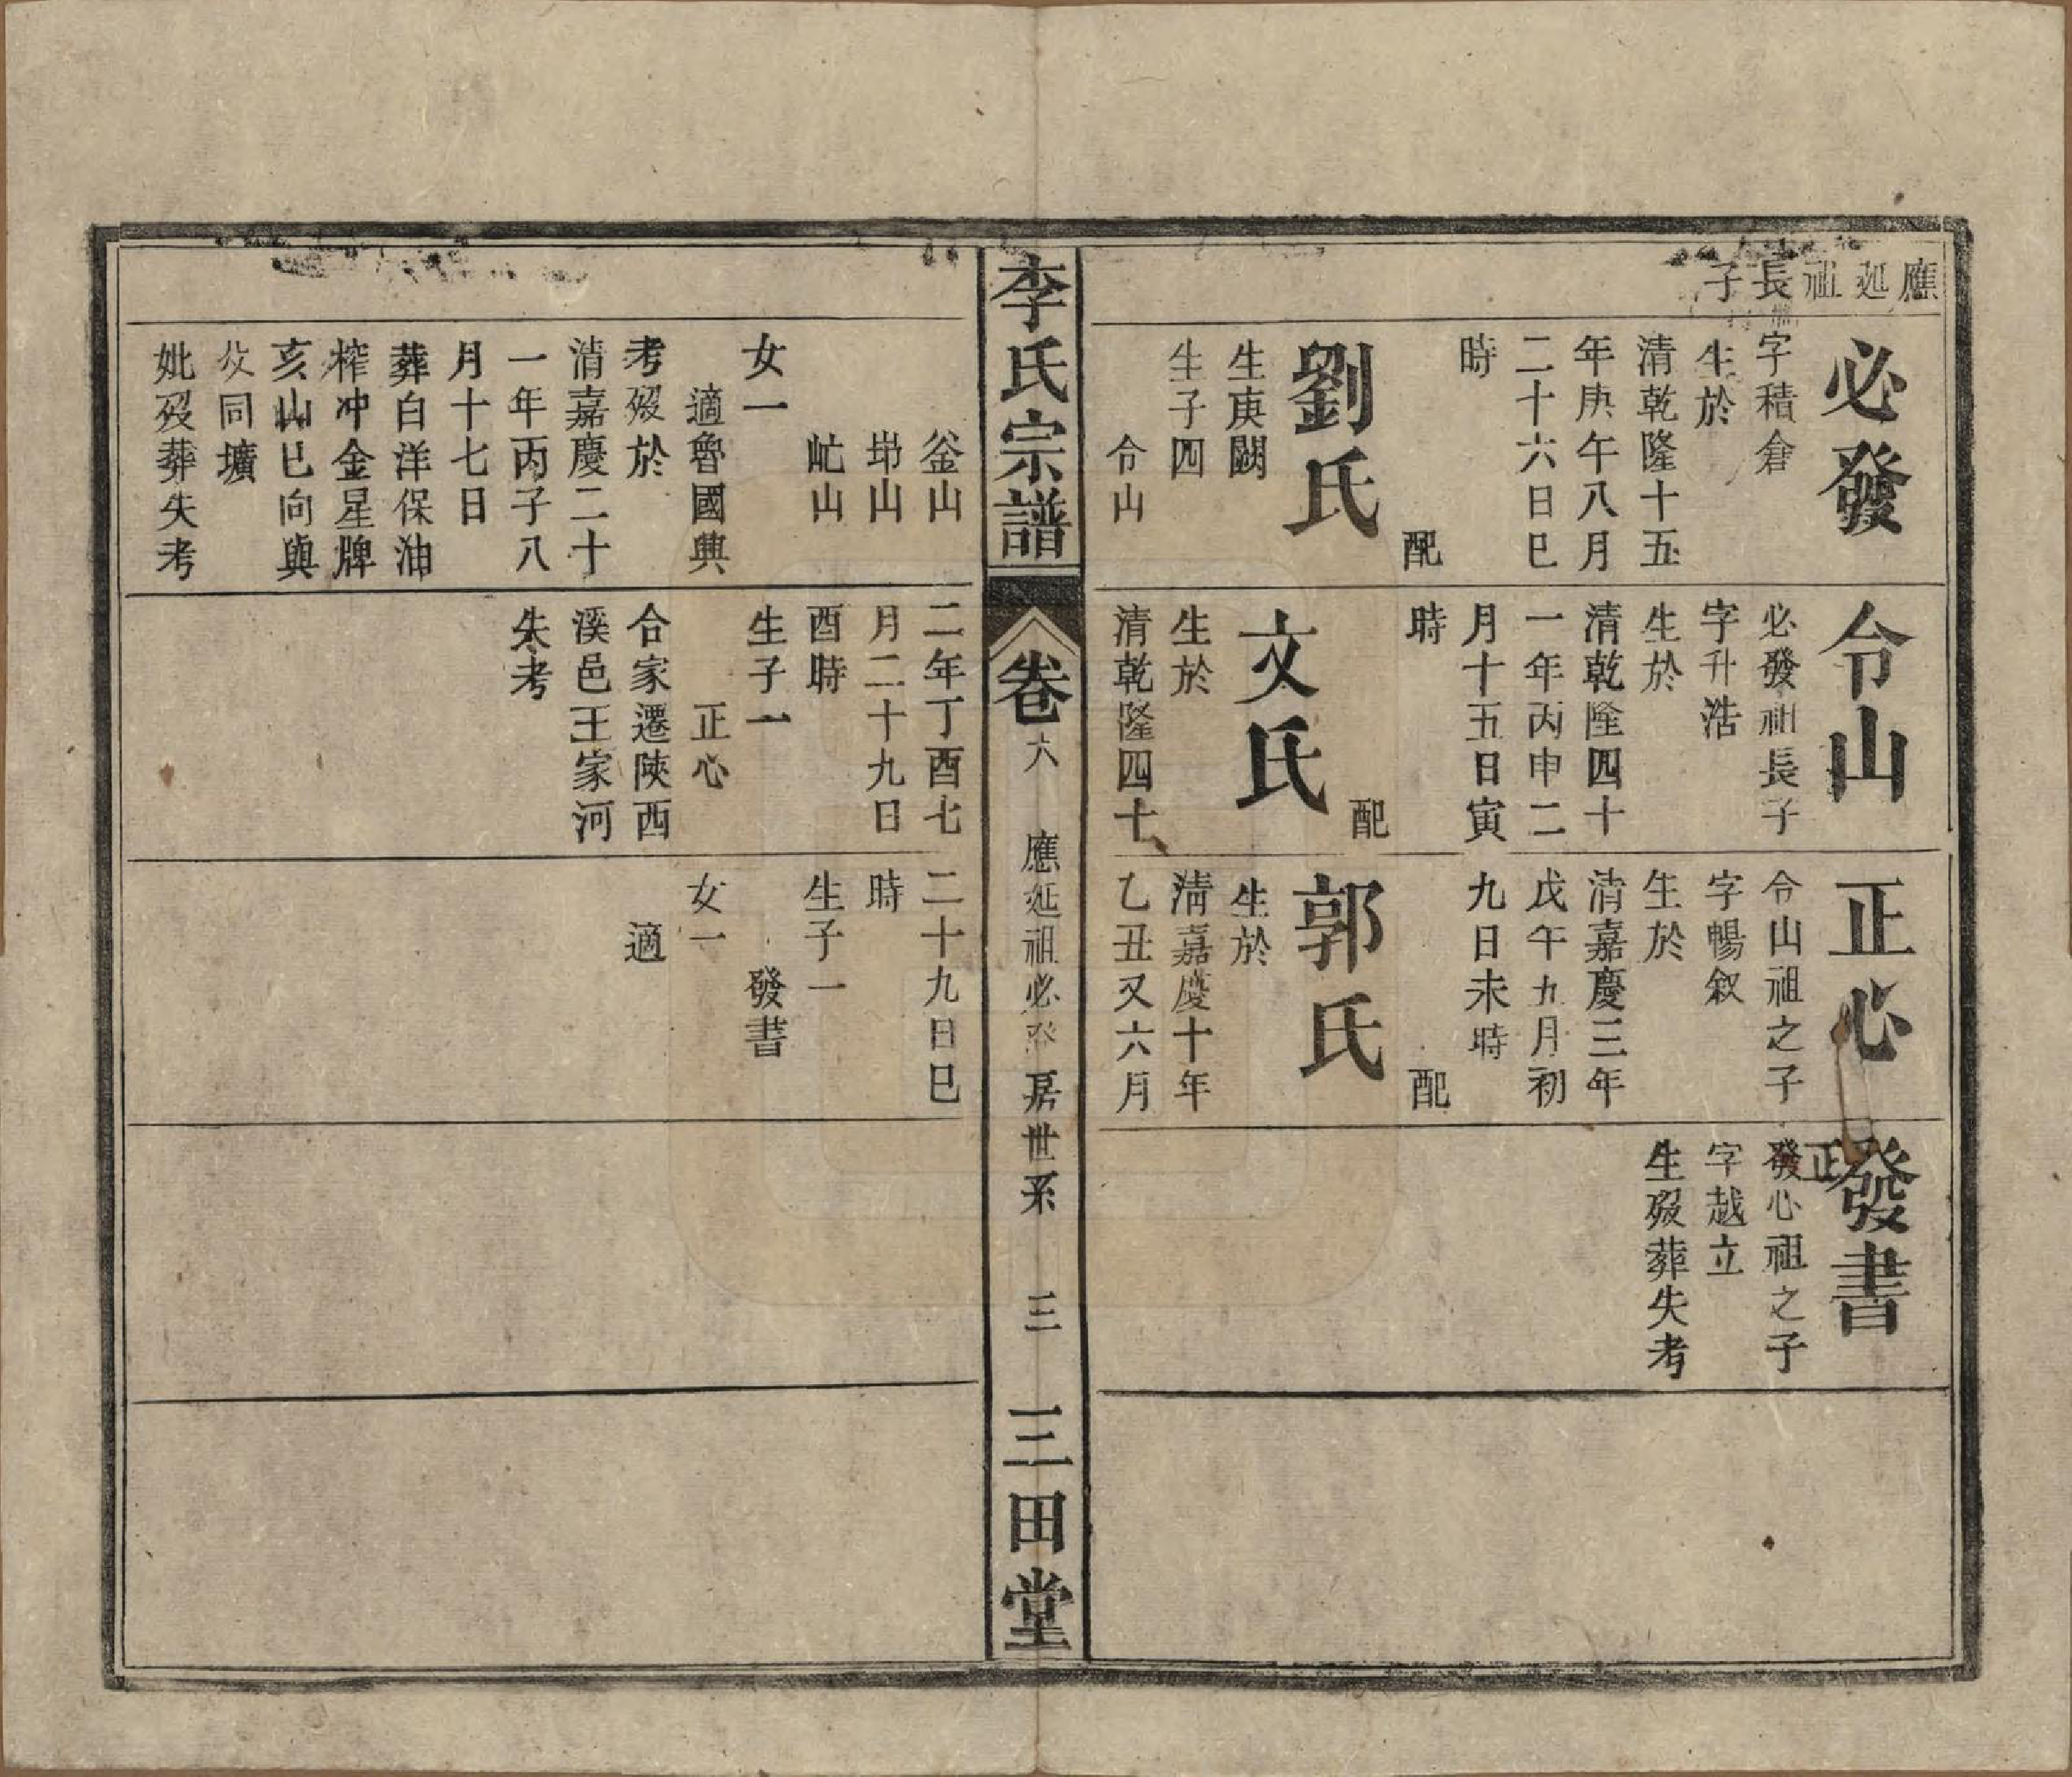 應廵祖長子
必發
字積倉
生於
清乾隆十五
年庚午八月
二十六日巳
時
配
劉氏
生庚闕
生子四
令山
令山
必發祖長子
字升浩
生於
清乾隆四十
一年丙申二
月十五日寅
時
配
文氏
生於
清乾隆四十
正心
令山祖之子
字暢叙
生於
清嘉慶三年
戊午九月初
九日未時
配
郭氏
生於
清嘉慶十年
乙丑又六月
發書
正
發心祖之子
字越立
生殁葬失考
李氏宗譜
卷六
應廵祖必發房世系
三
三田堂
釜山
峁山
屹山
女一
適魯國興
考殁於
清嘉慶二十
一年丙子八
月十七日
葬白洋保油
榨冲金星牌
亥山巳向與
父同壙
妣殁葬失考
二年丁酉七
月二十九日
酉時
生子一
正心
合家遷陝西
溪邑王家河
失考
二十九日巳
時
生子一
發書
女一
適